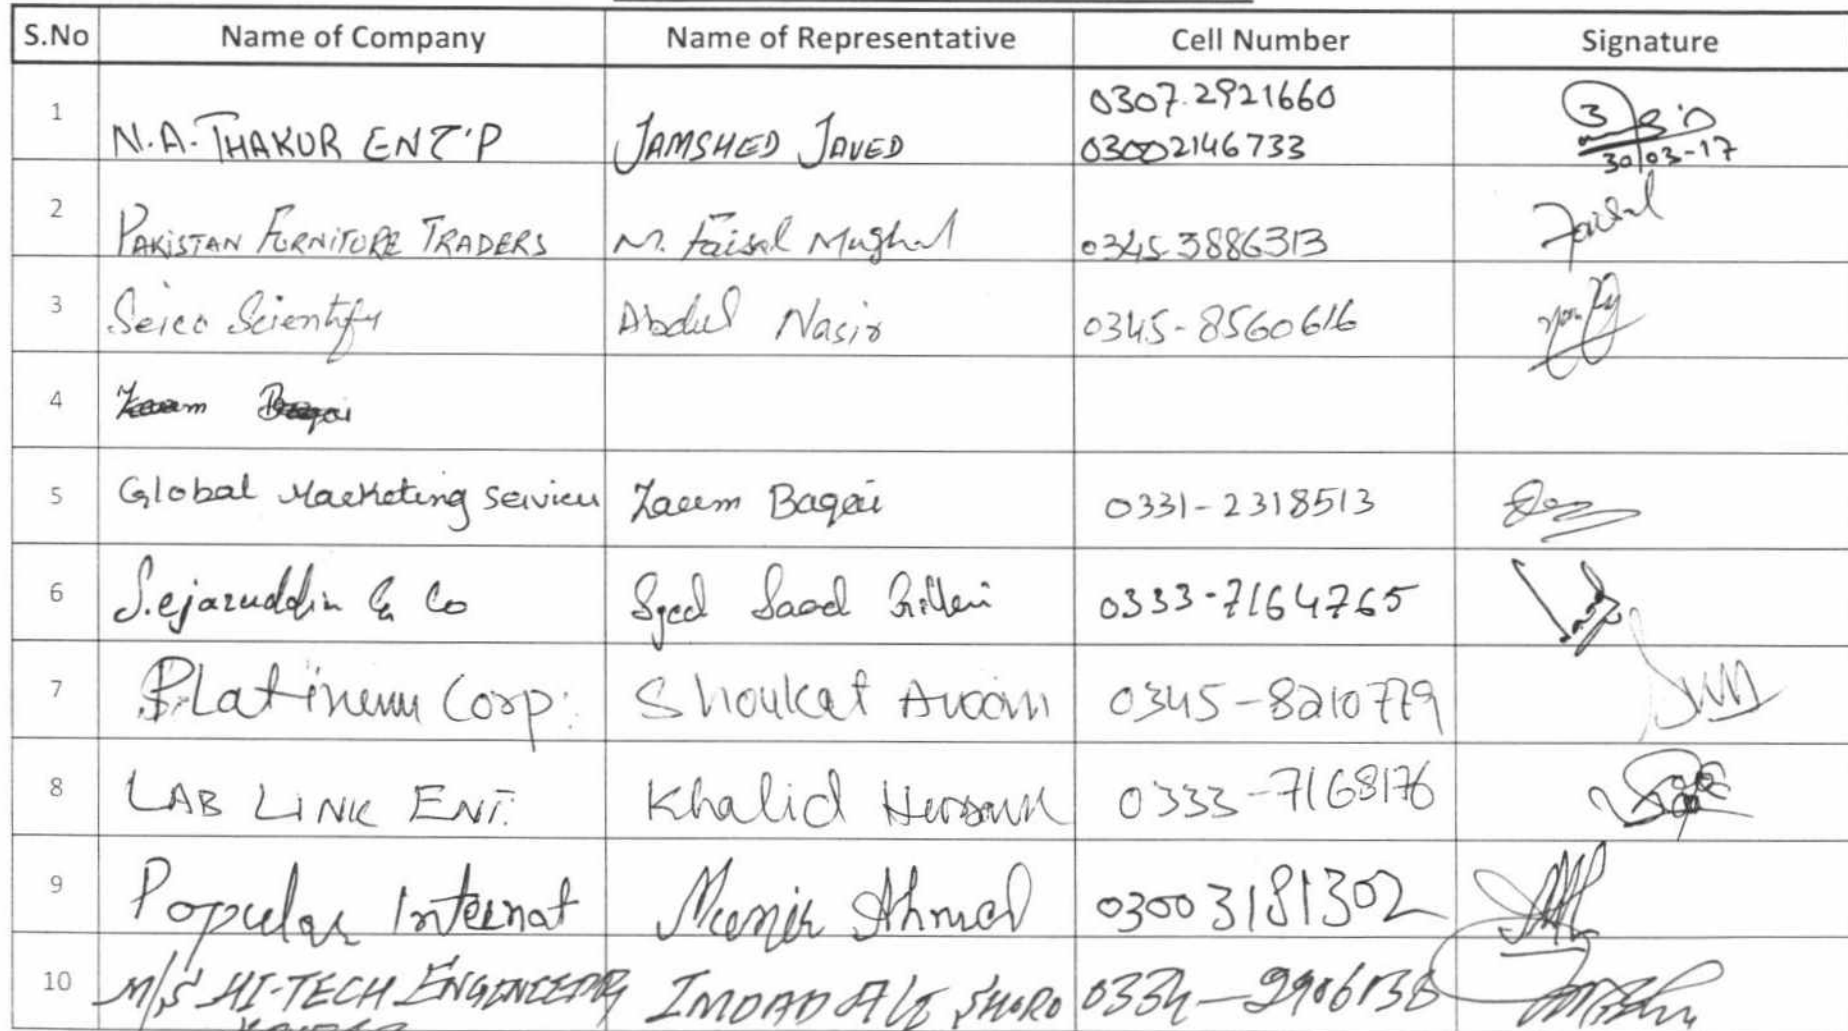 S.No Name of Company Name of Representative Cell Number Signature
1 N.A. THAKUR ENT'P JAMSHED JAVED 0307.2921660
03002146733
30/03-17
2 PAKISTAN FURNITURE TRADERS M. Faisal Mughal 0345-3886313 Faisal
3 Seico Scientify Abdul Nasir 0345-8560616
4
5 Global Marketing Services Zaeem Baqai 0331-2318513
6 S.ejazuddin & Co Syed Saad 0333-7164765
7 Platinum Corp: Shoukat Awan 0345-8210779
8 LAB LINK ENT. Khalid Hussain 0333-7168176
9 Popular Internat Munir Ahmed 03003181302
10 M/S HI-TECH ENGINEERING IMDAD ALI SHORO 0334-2906138